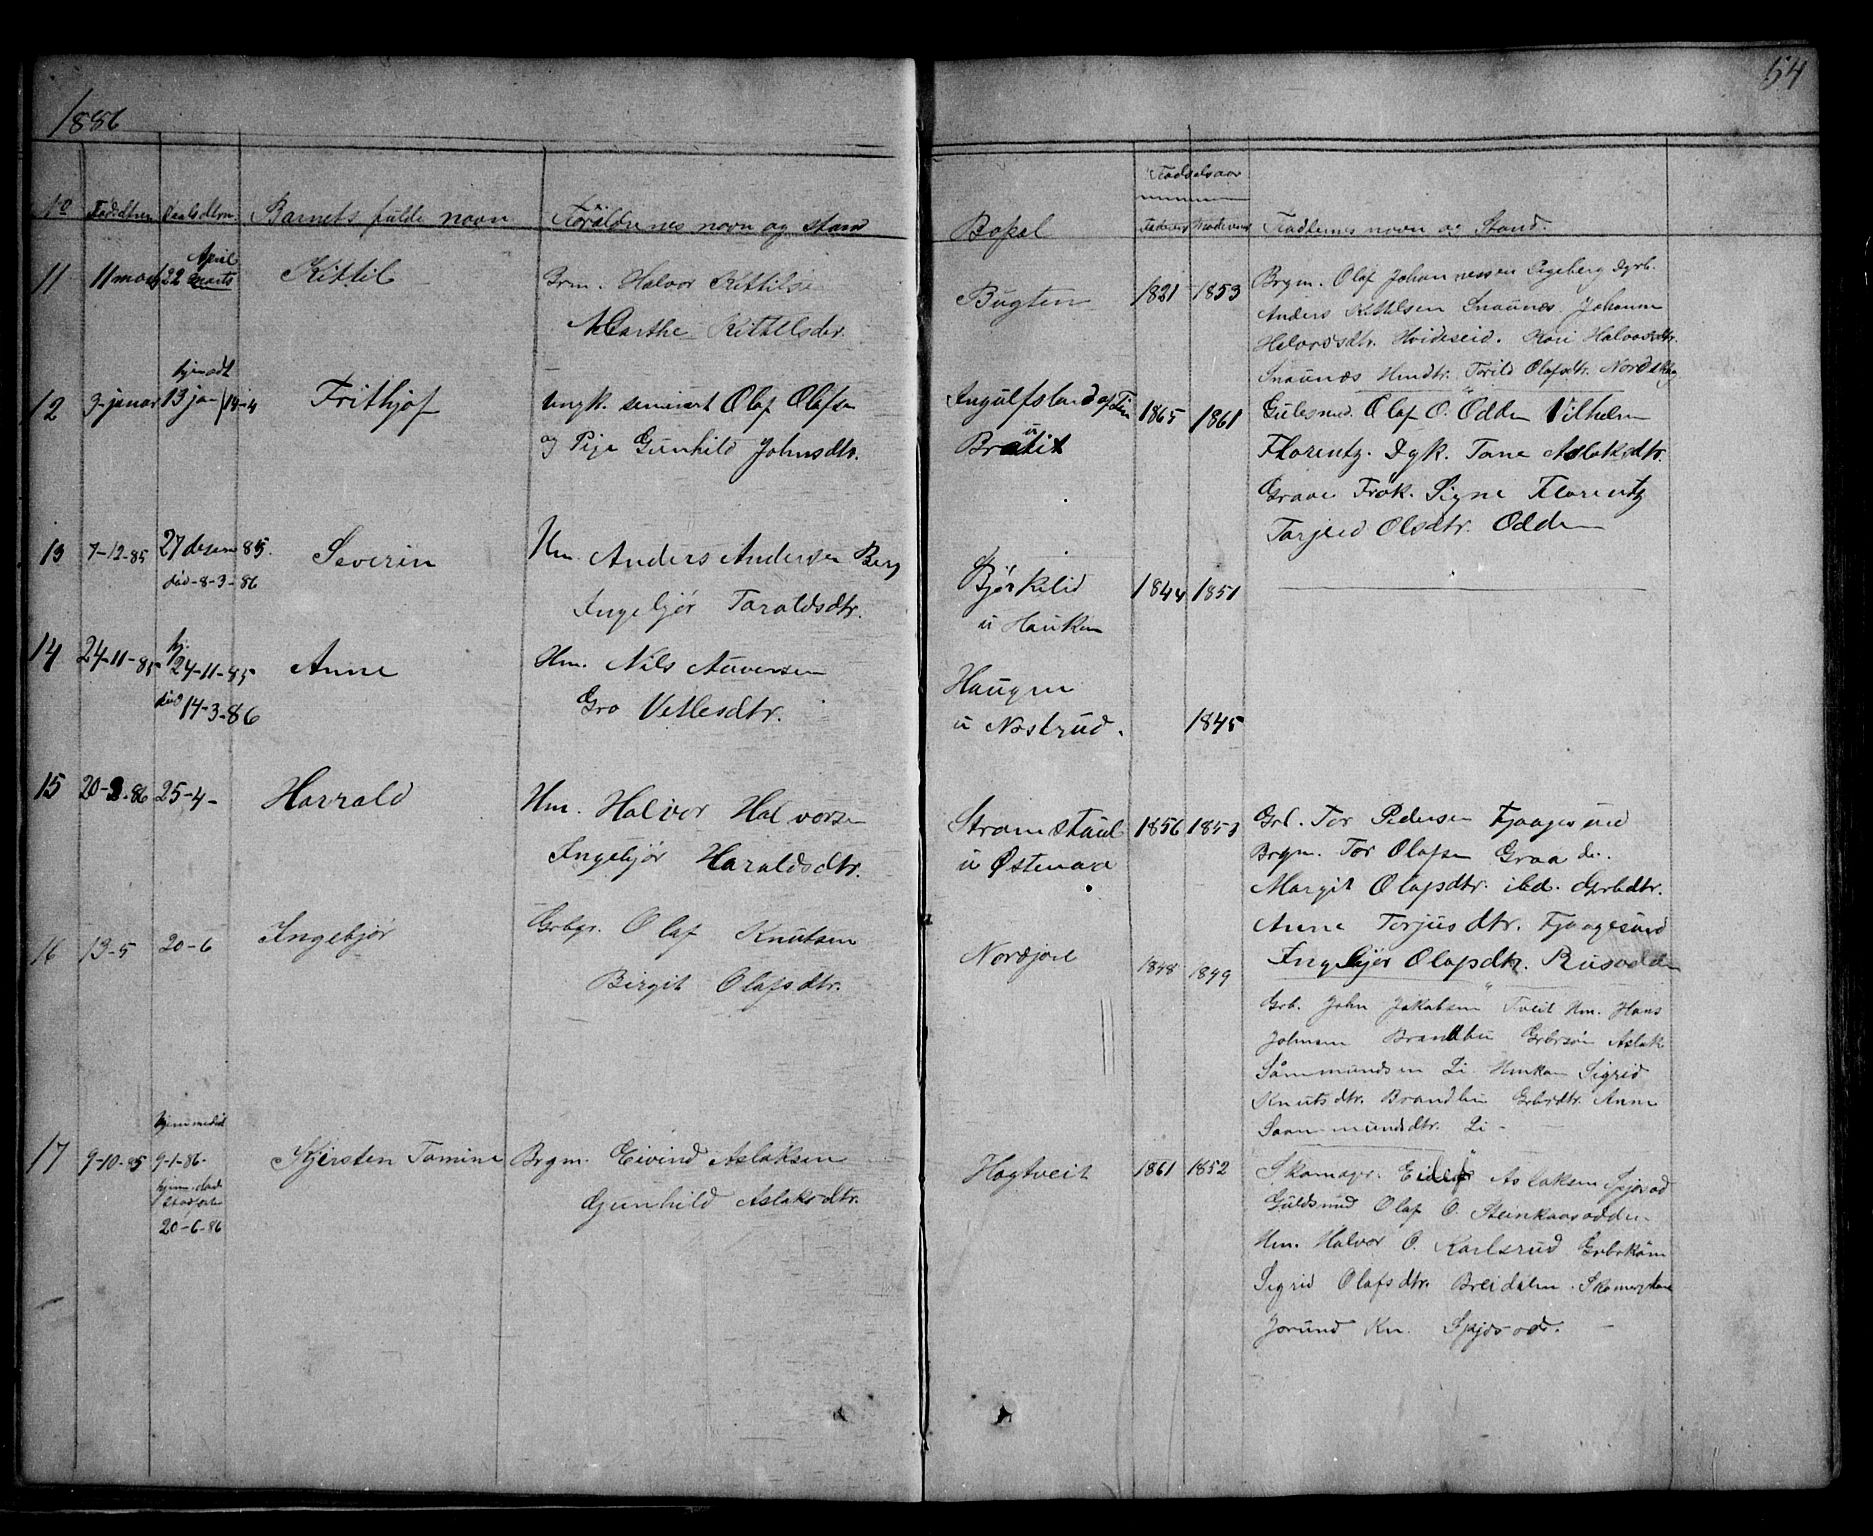 1886
54
No Fødsdtm Daabsdtm. Barnets fulde navn Forældrenes navn og stand
Fødselsaar
Bopæl Faderens Moderens Fadernes navn og Stand.
11 11 mars 22 April marts Kittil
Brm. Halvor Kittilsen
Marthe Kittelsdtr.
Bugten 1821 1853
Brgm. Olaf Johannessen
Anders Kittilsen Snaunæs Johanne
Halvorsdtr. Hvideseid. Kari Halvorsdtr.
Snaunæs Hmdtr. Torild Olafsdtr. Nordskog
12 3-januar hjemdøbt 13 jan 14-4 Frithjof
Ungk. seminart Olaf Olafsen
og Pige Gunhild Johnsdtr.
Ingulfsland af Tin
u Bratit
1865 1861
Guldsmd. Olaf O. Odden Vilhelm
Florentz. Dgk. Tone Aslaksdtr.
Graae Frøk. Signe Florentz
Torjerd Olsdtr. Odden
13 7-12-85 27 desem 85.
død-8-3-86
Severin
Hm. Anders Andersen Berg
Ingebjør Taraldsdtr.
Bjørkelid
u Hauken
1844 1851
14 24-11-85 hj. 24-11-85
død 14-3-86
Anne
Hm. Nils Auversen
Gro Vetlesdtr.
Haugen
u Nostrud.
1845
15 20-2-86 25-4- Harrald
Hm. Halvor Halvorsen
Ingebjør Haraldsdtr.
Strømstaul
u Østenaa
1856 1853
Grb. Tor Pedersen Fjaagesund
Brgm. Tor Olafsen Graa do.
Margit Olafsdtr. ibd. Grbdtr.
Anne Torjusdtr. Fjaagesund
Ingebjør Olafsdtr. Rusodden
16 13-5 20-6 Ingebjør
Grbgr. Olaf Knutsen
Birgit Olafsdtr.
Nordjore 1848 1849
Grb. John Jakobsen Tveit Hm. Hans
Johnsen Brandlie Grbrsøn Aslak
Såmmundsen Li Hmkon Sigrid
Knutsdtr. Brandlie Grbrdtr. Anne
Saammundsdtr. Li-
17 9-10-85 hjemmedøbt
9-1-86-
Stadfæst
20-6-86
Kjersten Tomine
Brgm. Eivind Aslaksen
Gunhild Aslaksdtr.
Hogtveit 1861 1852
Skomagr. Eilef Aslaksen Spjosod
Guldsmd Olaf O. Steinkaasodden
Hm. Halvor O. Karlsrud Grbrkone
Sigrid Olafsdtr. Breidalen. Skomagrkone
Jorund Kn. Spjosodr.